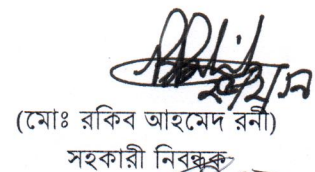 (মোঃ রকিব আহমেদ রনী)
সহকারী নিবন্ধক